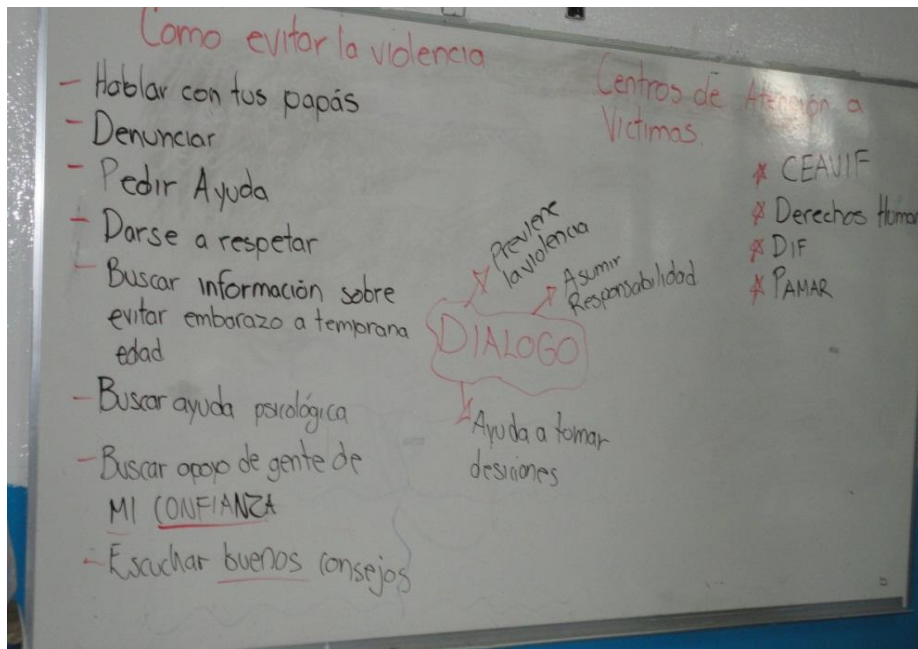 Como evitar la violencia
- Hablar con tus papás
- Denunciar
- Pedir Ayuda
- Darse a respetar
- Buscar información sobre
evitar embarazo a temprana
edad
- Buscar ayuda psicológica
- Buscar apoyo de gente de
MI CONFIANZA
- Escuchar buenos consejos
DIALOGO
Previene
la violencia
Asumir
Responsabilidad
Ayuda a tomar
desiciones
Centros de Atención a
Victimas.
CEAVIF
Derechos Human
DIF
PAMAR